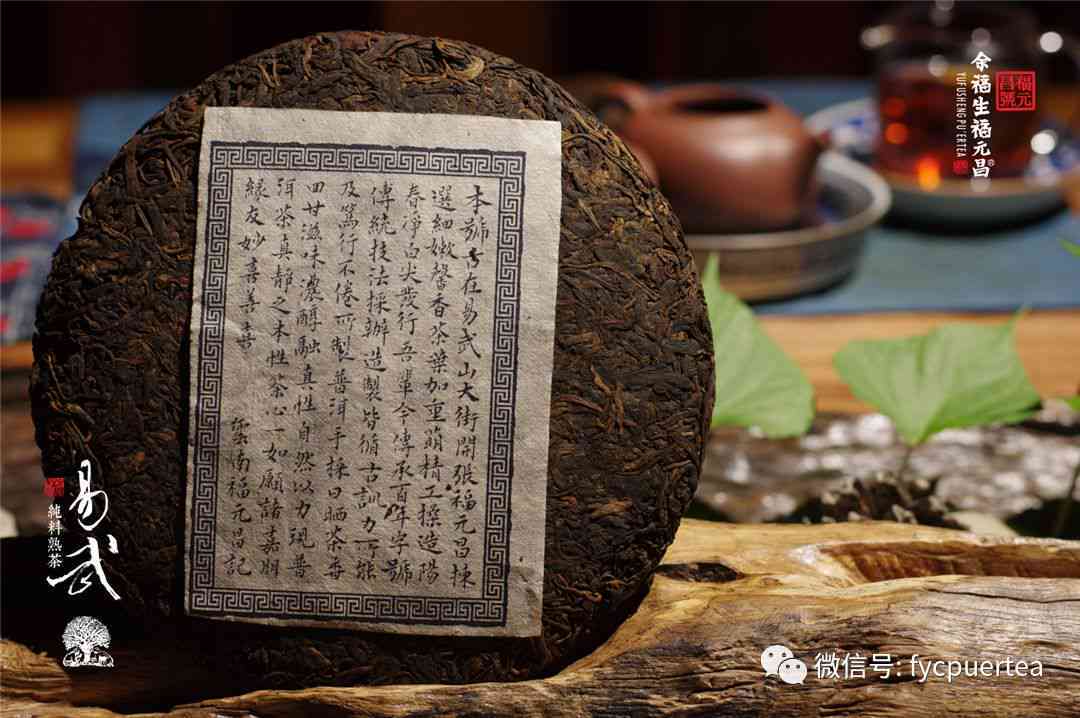 本號昔在易武山大街開張福元昌揀
選細嫩馨香茶葉加重萌精工揉造陽
春淨白尖發行吾輩今傳承百年字號
傳統技法採辦造製皆循古訓力所能
及篤行不倦所製普洱手採日晒茶香
回甘滋味濃醇融真性自然以力現普
洱茶真靜之本性茶心一如願諸嘉朋
緣友妙喜善
雲南福元昌記
余福生福元昌
YUFUSHENG PU'ERTEA
福元昌號
易武
純料熟茶
微信号: fycpuertea